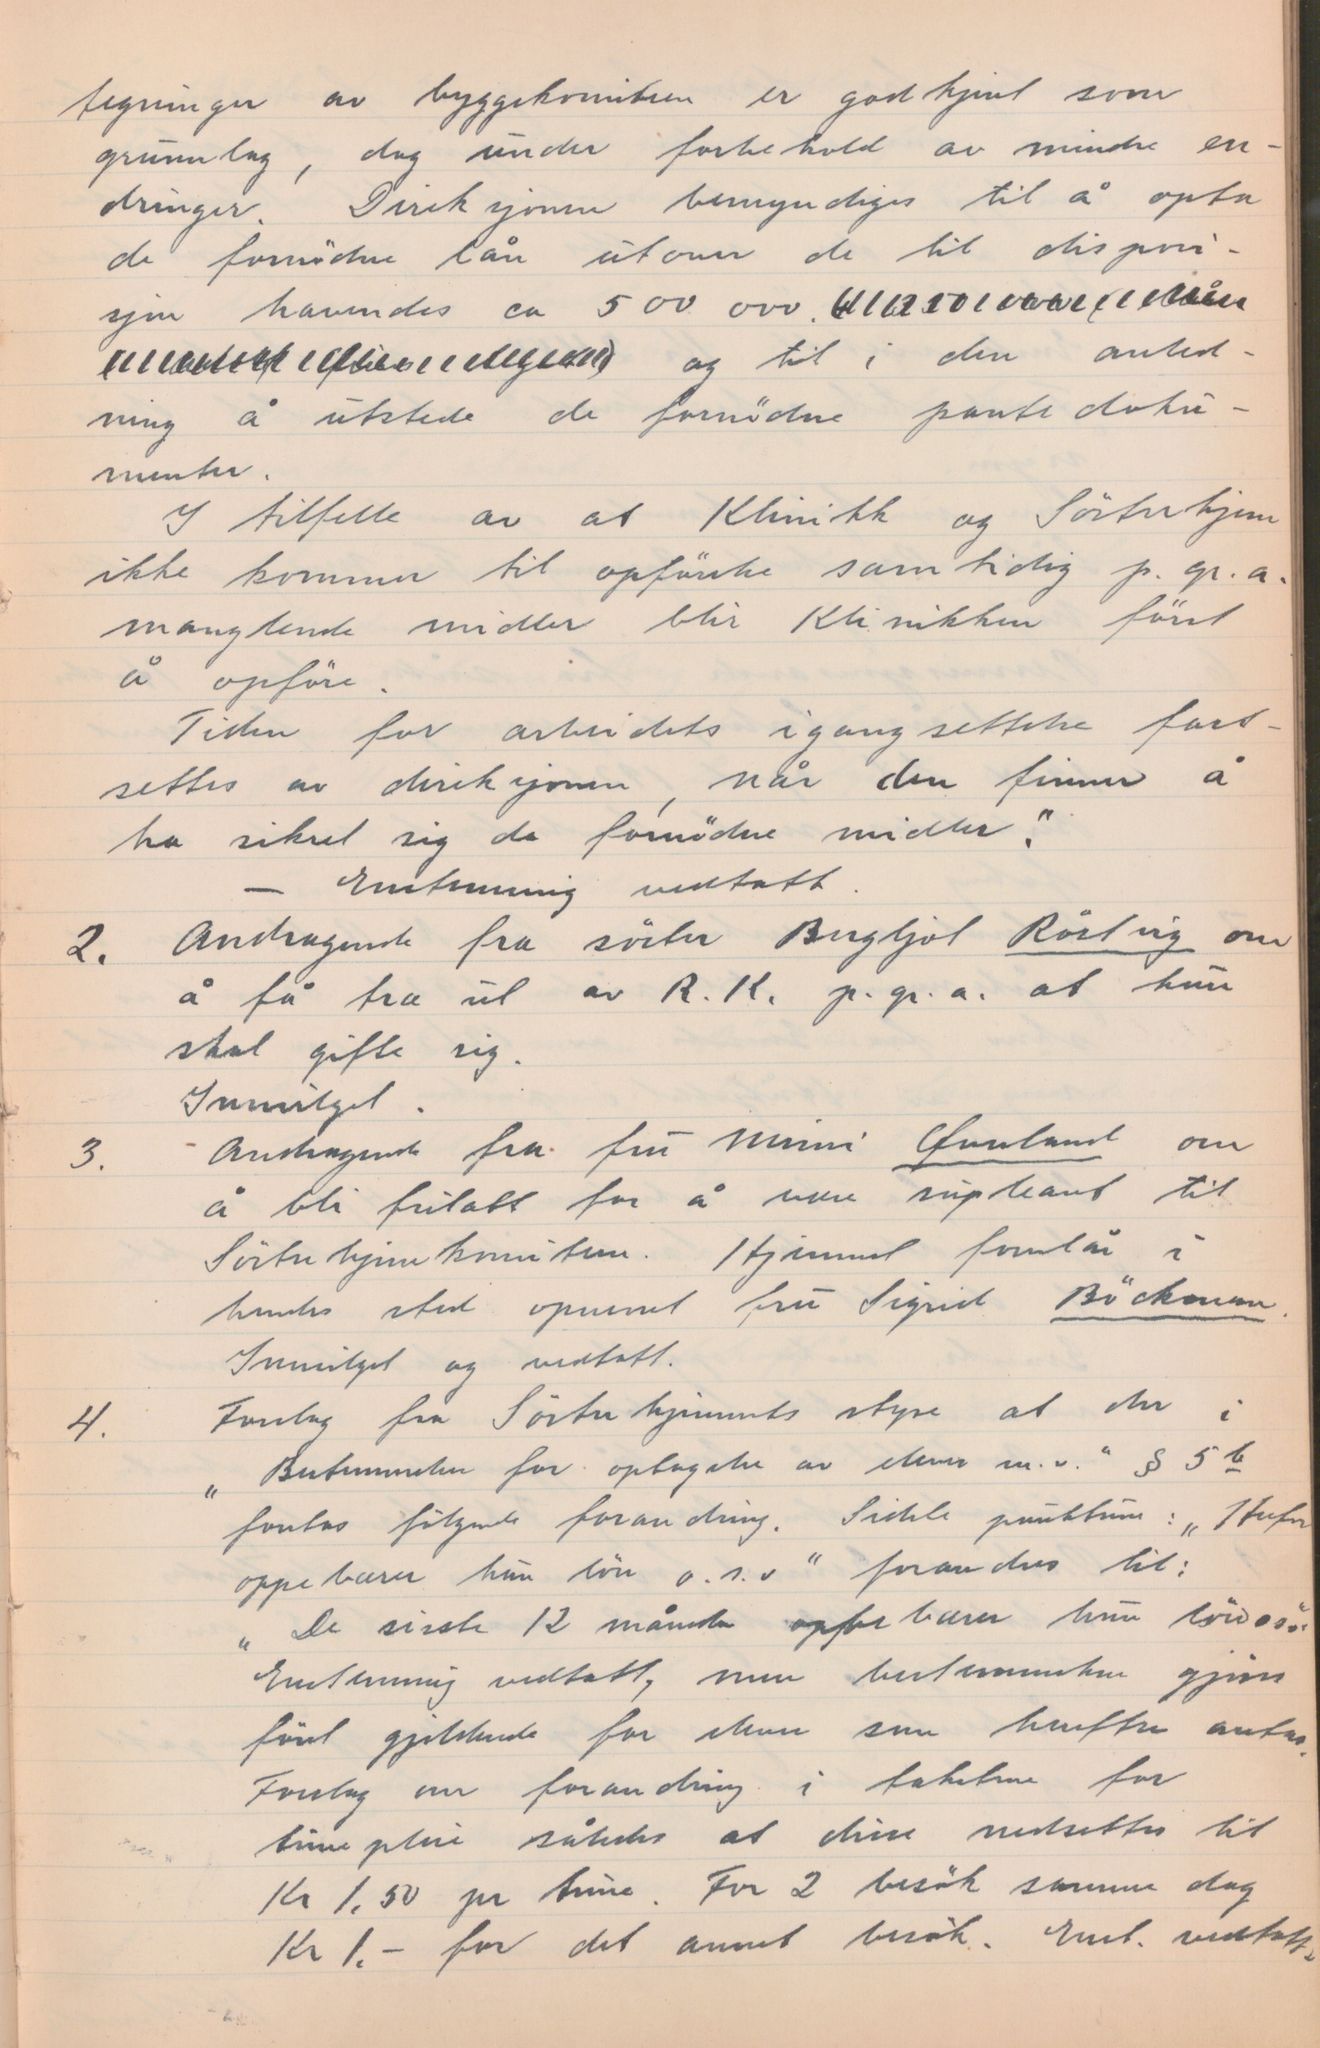 tegninger av byggekomiteen er godkjent som
grunnlag, dog under forbehold av mindre en-
dringer. Direksjonen bemyndiges til å opta
de fornödne lån utover de til disposi-
sjon havendes ca 500 000.
og til i den anled-
ning å utstede de fornödne pantedoku-
menter.
I tilfelle av at Klinikk og Sösterhjem
ikke kommer til opförelse samtidig p. gr. a.
manglende midler blir Klinikken först
å opföre.
Tiden for arbeidets igangsettelse fast-
settes av direksjonen, når den finner å
ha sikret sig de fornödne midler."
- Enstemmig vedtatt.
2. Andragende fra söster Bergljot Röstvig om
å få tre ut av R.K. p.gr.a. at hun
skal gifte sig.
Innvilget.
3. Andragende fra fru Mimi om
å bli fritatt for å være supleant til
Sösterhjemkomiteen. Hjemmet foreslår i
hendes sted opnevnt fru Sigrid Böckman.
Innvilget og vedtatt.
4. Forslag fra Sösterhjemmets styre at der i
"Bestemmelser for optagelse av elever m.v." § 5 b
foretas fölgende forandring. Sidste punktum: "Herfor
oppebærer hun lön o.s.v" forandres til:
"De siste 12 måneder oppebærer hun lön o.s.v."
Enstemmig vedtatt, men bestemmelsen gjöres
först gjeldende for elever som herefter antas.
Forslag om forandring i takstene for
timepleie således at disse nedsettes til
Kr 1.50 pr time. For 2 besök samme dag
Kr 1.- for det annet besök. Enst. vedtatt.